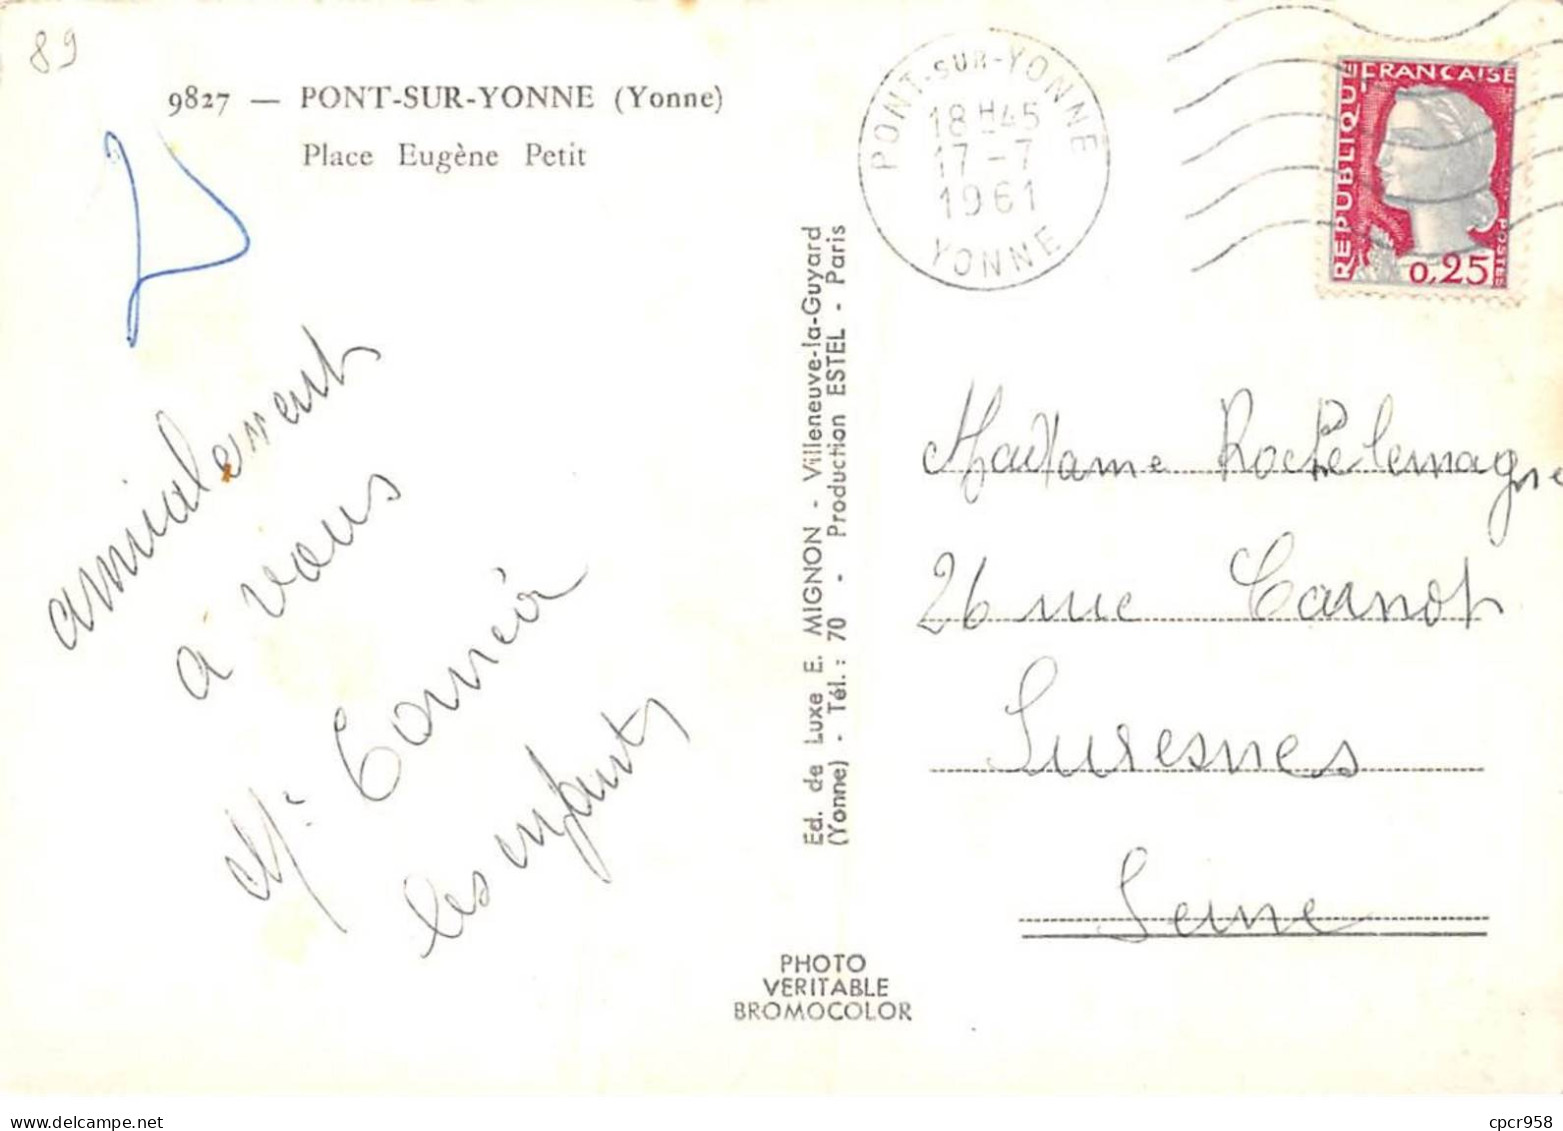 89
9827 — PONT-SUR-YONNE (Yonne)
Place Eugène Petit
amicalement
à vous
les enfants
Ed. de Luxe E. MIGNON - Villeneuve-la-Guyard
(Yonne) - Tél. : 70 - Production ESTEL - Paris
PHOTO
VERITABLE
BROMOCOLOR
PONT-SUR-YONNE
18H45
17-7
1961
YONNE
REPUBLIQUE FRANÇAISE
POSTES
0,25
Madame Rochelemagne
26 rue Carnot
Suresnes
Seine
cpcr958